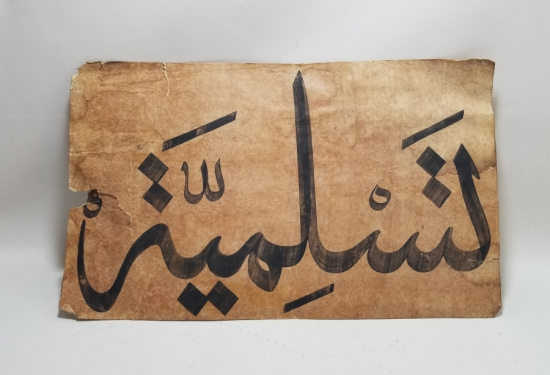 تَسْلِميَّةُ